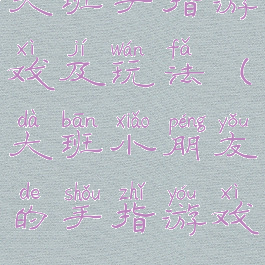 大班手指游
xì jí wán fǎ
戏及玩法（
dà bān xiǎo péng yǒu
大班小朋友
de shǒu zhǐ yóu xì
的手指游戏